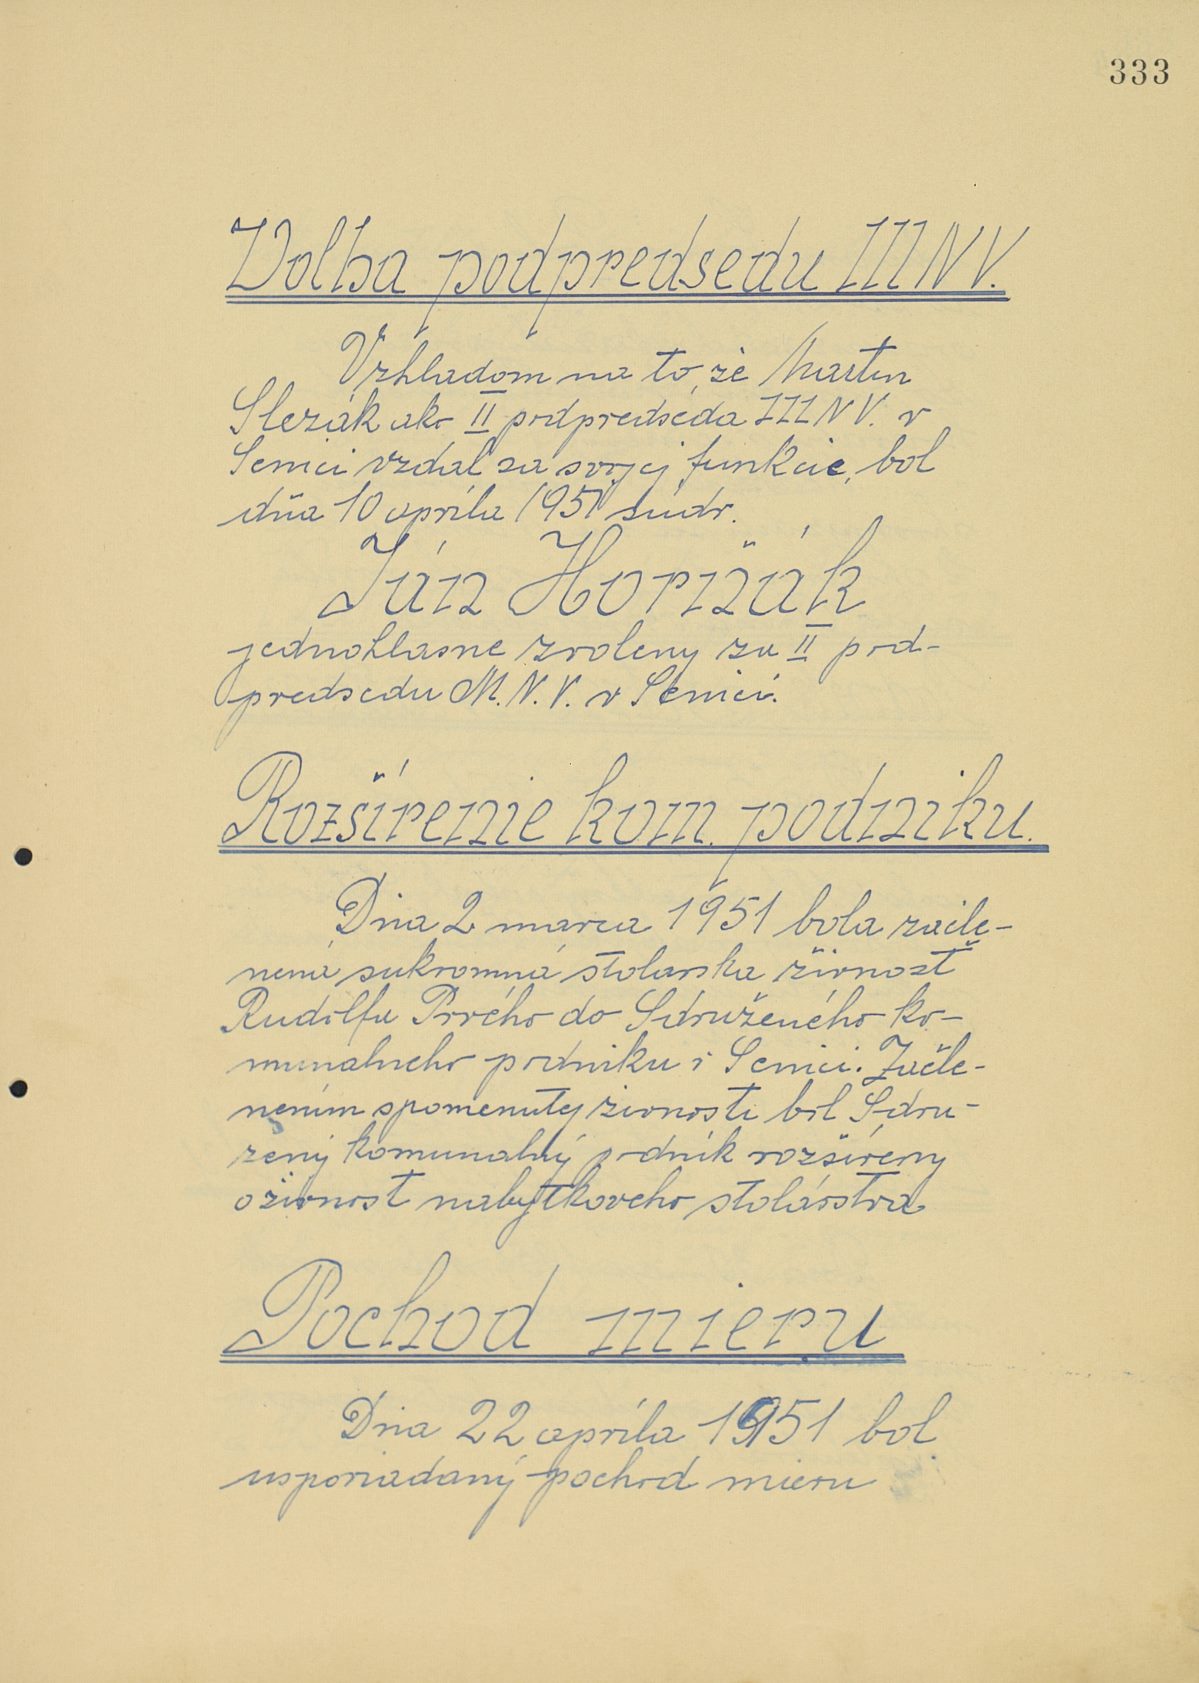 333
Volba podpredsedu MNV.
Vzhladom na to, že Martin
Slezák ako II podpredseda MNV. v
Senici vzdal sa svojej funkcie, bol
dňa 10 apríla 1951 súdr.
Ján Horižák
jednohlasne zvoleny za II pod-
predsedu M.N.V. v Senici.
Rozšírenie kom. podniku.
Dna 2 marca 1951 bola zacle-
nená sukromná stolarska živnosť
Rudolfa Prvého do Sdruženého ko-
munalneho podniku v Senici. Zacle-
nením spomenutej živnosti bol Sdru-
ženy komunalný podnik rozšíreny
o živnosť nabytkoveho stolárstva
Pochod mieru
Dna 22 apríla 1951 bol
usporiadaný pochod mieru